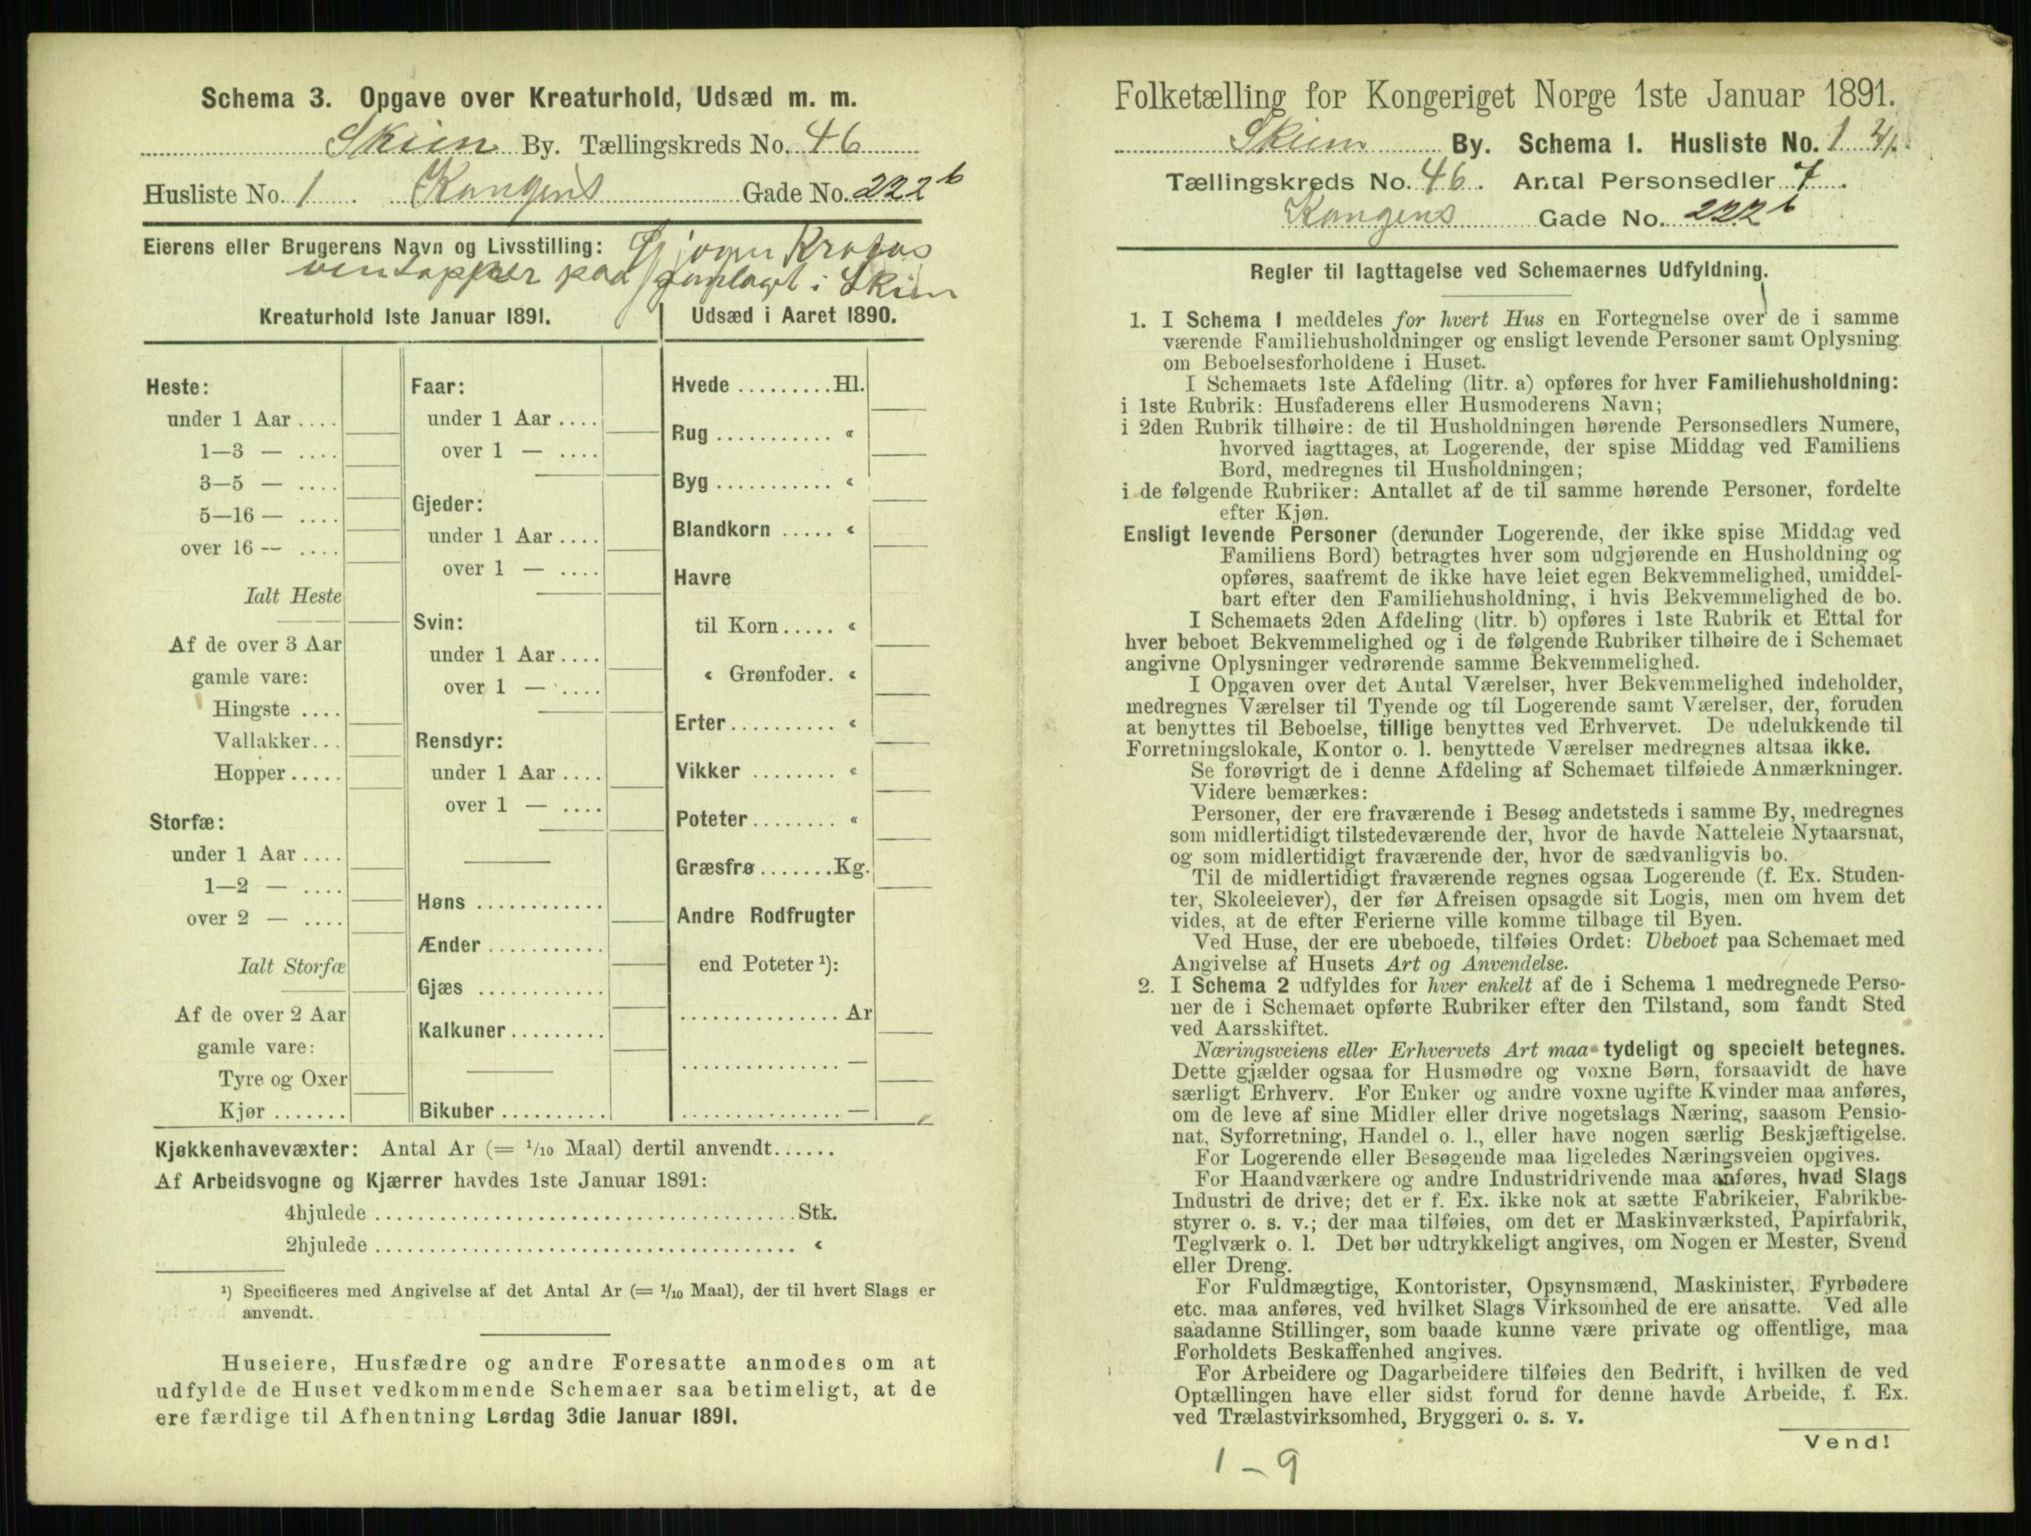 Schema 3. Opgave over Kreaturhold, Udsæd m. m.
Skien By. Tællingskreds No. 46
Husliste No. 1 Kongens Gade No. 222 b
Eierens eller Brugerens Navn og Livsstilling:
paa i Skien
Kreaturhold 1ste Januar 1891.
Udsæd i Aaret 1890.
Heste:
under 1 Aar ....
1—3 — ....
3—5 — ....
5—16 — ....
over 16 — ....
Ialt Heste
Af de over 3 Aar
gamle vare:
Hingste ....
Vallakker...
Hopper.....
Storfæ:
under 1 Aar ....
1—2 — ....
over 2 — ....
Ialt Storfæ
Af de over 2 Aar
gamle vare:
Tyre og Oxer
Kjør .......
Faar:
under 1 Aar ....
over 1 — ....
Gjeder:
under 1 Aar ....
over 1 — ....
Svin:
under 1 Aar ....
over 1 — ....
Rensdyr:
under 1 Aar ....
over 1 — ....
Høns ............
Ænder ...........
Gjæs ............
Kalkuner..........
Bikuber ..........
Hvede .........Hl.
Rug ........... «
Byg ........... «
Blandkorn ..... «
Havre
til Korn..... «
« Grønfoder. «
Erter.......... «
Vikker ........ «
Poteter........ «
Græsfrø .......Kg.
Andre Rodfrugter
end Poteter ¹):
............... Ar
............... —
............... —
Kjøkkenhavevæxter: Antal Ar (= 1/10 Maal) dertil anvendt......
Af Arbeidsvogne og Kjærrer havdes 1ste Januar 1891:
4hjulede ........................................Stk.
2hjulede ........................................ «
¹) Specificeres med Angivelse af det Antal Ar (= 1/10 Maal), der til hvert Slags er
anvendt.
Huseiere, Husfædre og andre Foresatte anmodes om at
udfylde de Huset vedkommende Schemaer saa betimeligt, at de
ere færdige til Afhentning Lørdag 3die Januar 1891.
Folketælling for Kongeriget Norge 1ste Januar 1891.
Skien By. Schema 1. Husliste No. 1
Tællingskreds No. 46. Antal Personsedler 7.
Kongens Gade No. 222 b
Regler til Iagttagelse ved Schemaernes Udfyldning.
1. I Schema 1 meddeles for hvert Hus en Fortegnelse over de i samme
værende Familiehusholdninger og ensligt levende Personer samt Oplysning
om Beboelsesforholdene i Huset.
I Schemaets 1ste Afdeling (litr. a) opføres for hver Familiehusholdning:
i 1ste Rubrik: Husfaderens eller Husmoderens Navn;
i 2den Rubrik tilhøire: de til Husholdningen hørende Personsedlers Numere,
hvorved iagttages, at Logerende, der spise Middag ved Familiens
Bord, medregnes til Husholdningen;
i de følgende Rubriker: Antallet af de til samme hørende Personer, fordelte
efter Kjøn.
Ensligt levende Personer (derunder Logerende, der ikke spise Middag ved
Familiens Bord) betragtes hver som udgjørende en Husholdning og
opføres, saafremt de ikke have leiet egen Bekvemmelighed, umiddel-
bart efter den Familiehusholdning, i hvis Bekvemmelighed de bo.
I Schemaets 2den Afdeling (litr. b) opføres i 1ste Rubrik et Ettal for
hver beboet Bekvemmelighed og i de følgende Rubriker tilhøire de i Schemaet
angivne Oplysninger vedrørende samme Bekvemmelighed.
I Opgaven over det Antal Værelser, hver Bekvemmelighed indeholder,
medregnes Værelser til Tyende og til Logerende samt Værelser, der, foruden
at benyttes til Beboelse, tillige benyttes ved Erhvervet. De udelukkende til
Forretningslokale, Kontor o. l. benyttede Værelser medregnes altsaa ikke.
Se forøvrigt de i denne Afdeling af Schemaet tilføiede Anmærkninger.
Videre bemærkes:
Personer, der ere fraværende i Besøg andetsteds i samme By, medregnes
som midlertidigt tilstedeværende der, hvor de havde Natteleie Nytaarsnat,
og som midlertidigt fraværende der, hvor de sædvanligvis bo.
Til de midlertidigt fraværende regnes ogsaa Logerende (f. Ex. Studen-
ter, Skoleelever), der før Afreisen opsagde sit Logis, men om hvem det
vides, at de efter Ferierne ville komme tilbage til Byen.
Ved Huse, der ere ubeboede, tilføies Ordet: Ubeboet paa Schemaet med
Angivelse af Husets Art og Anvendelse.
2. I Schema 2 udfyldes for hver enkelt af de i Schema 1 medregnede Perso-
ner de i Schemaet opførte Rubriker efter den Tilstand, som fandt Sted
ved Aarsskiftet.
Næringsveiens eller Erhvervets Art maa tydeligt og specielt betegnes.
Dette gjælder ogsaa for Husmødre og voxne Børn, forsaavidt de have
særligt Erhverv. For Enker og andre voxne ugifte Kvinder maa anføres,
om de leve af sine Midler eller drive nogetslags Næring, saasom Pensio-
nat, Syforretning, Handel o. l., eller have nogen særlig Beskjæftigelse.
For Logerende eller Besøgende maa ligeledes Næringsveien opgives.
For Haandværkere og andre Industridrivende maa anføres, hvad Slags
Industri de drive; det er f. Ex. ikke nok at sætte Fabrikeier, Fabrikbe-
styrer o. s. v.; der maa tilføies, om det er Maskinværksted, Papirfabrik,
Teglværk o. l. Det bør udtrykkeligt angives, om Nogen er Mester, Svend
eller Dreng.
For Fuldmægtige, Kontorister, Opsynsmænd, Maskinister, Fyrbødere
etc. maa anføres, ved hvilket Slags Virksomhed de ere ansatte. Ved alle
saadanne Stillinger, som baade kunne være private og offentlige, maa
Forholdets Beskaffenhed angives.
For Arbeidere og Dagarbeidere tilføies den Bedrift, i hvilken de ved
Optællingen have eller sidst forud for denne havde Arbeide, f. Ex.
ved Trælastvirksomhed, Bryggeri o. s. v.
Vend!
1 - 9